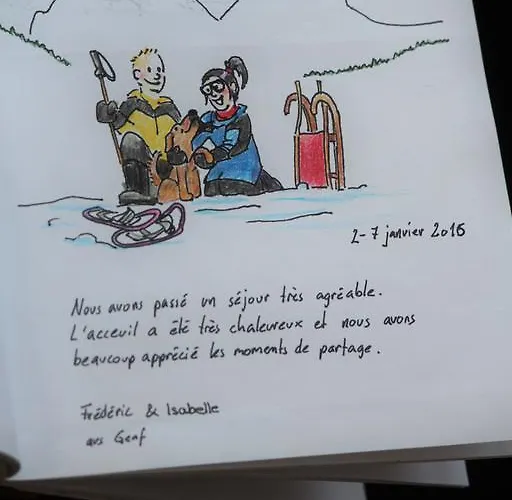 2-7 janvier 2016
Nous avons passé un séjour très agréable.
L'acceuil a été très chaleureux et nous avons
beaucoup apprécié les moments de partage.
Frédéric & Isabelle
aus Genf